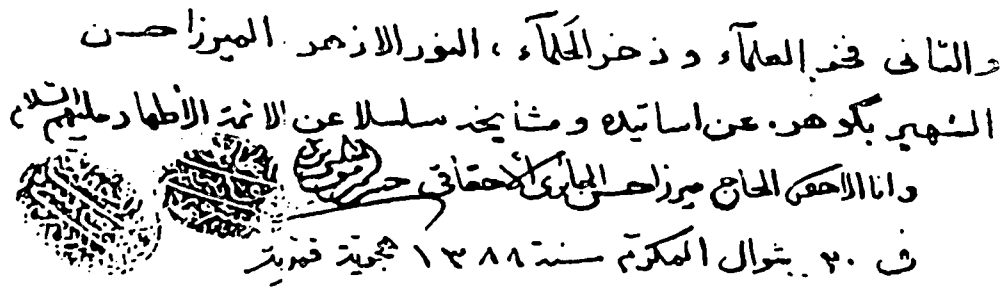 والثاني فخر العلمآء و ذخر الحكمآء ، النور الازهر الميرزا حسن
الشهير بگوهر. عن اساتيده و مشايخه سلسلا عن الائمة الأطهار عليهم السلام
وانا الاحقر الحاج ميرزا حسن الحائري الاحقاقي
في ٣٠ شوال المكرم سنة ١٣٨٨ هجرية قمرية